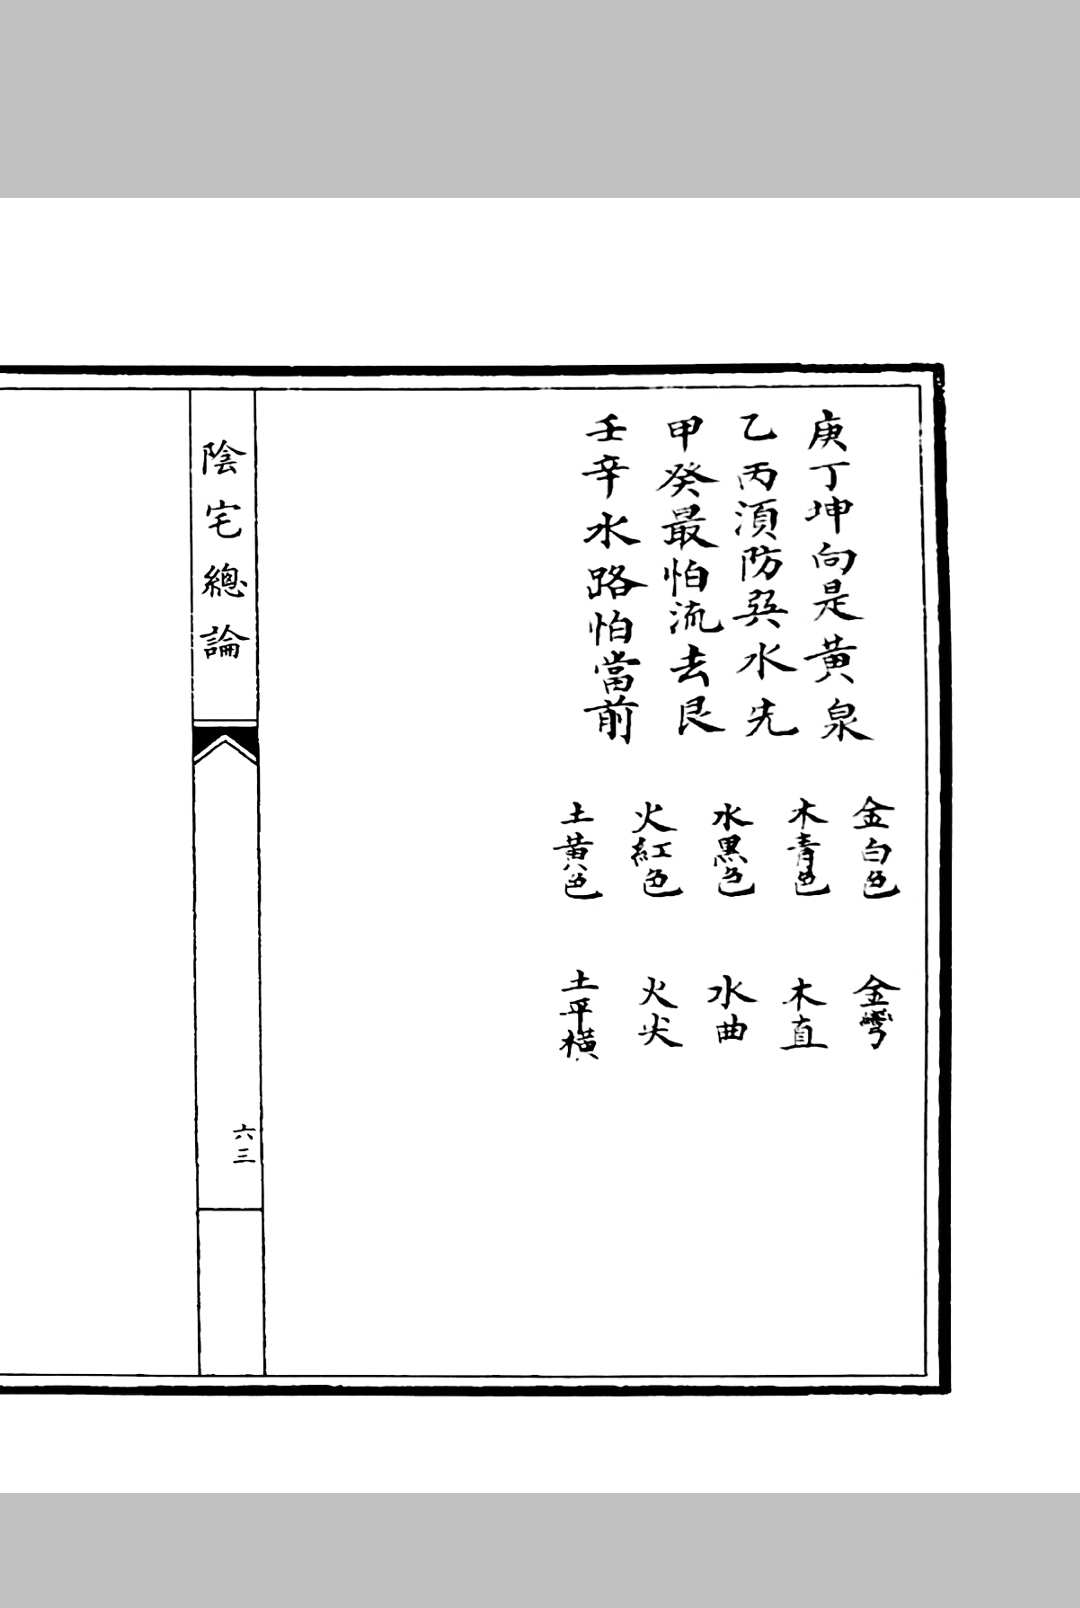 庚丁坤向是黃泉
乙丙須防巽水先
甲癸最怕流去艮
壬辛水路怕當前
金白色
木青色
水黑色
火紅色
土黃色
金彎
木直
水曲
火尖
土平橫
陰宅總論
六三